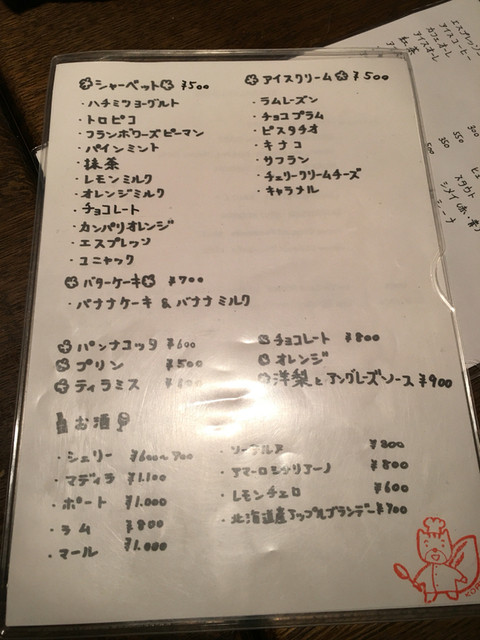 シャーベット ¥500
・ハチミツヨーグルト
・トロピコ
・フランボワーズピーマン
・パインミント
・抹茶
・レモンミルク
・オレンジミルク
・チョコレート
・カンパリオレンジ
・エスプレッソ
・コニャック
アイスクリーム ¥500
・ラムレーズン
・チョコプラム
・ピスタチオ
・キナコ
・サフラン
・チェリークリームチーズ
・キャラメル
バターケーキ ¥700
・バナナケーキ & バナナミルク
パンナコッタ ¥600
プリン ¥500
ティラミス
チョコレート ¥800
オレンジ
洋梨とアングレーズソース ¥900
お酒
・シェリー ¥600~700
・マディラ ¥1.100
・ポート ¥1.000
・ラム ¥800
・マール ¥1.000
・ソーテルヌ ¥800
・アマーロシシリアーノ ¥800
・レモンチェロ ¥600
・北海道産アップルブランデー ¥700
エスプレッソ
アイスコーヒー
カフェオーレ
アイスオーレ
紅茶
300
550
350
500
スタウト
シメイ